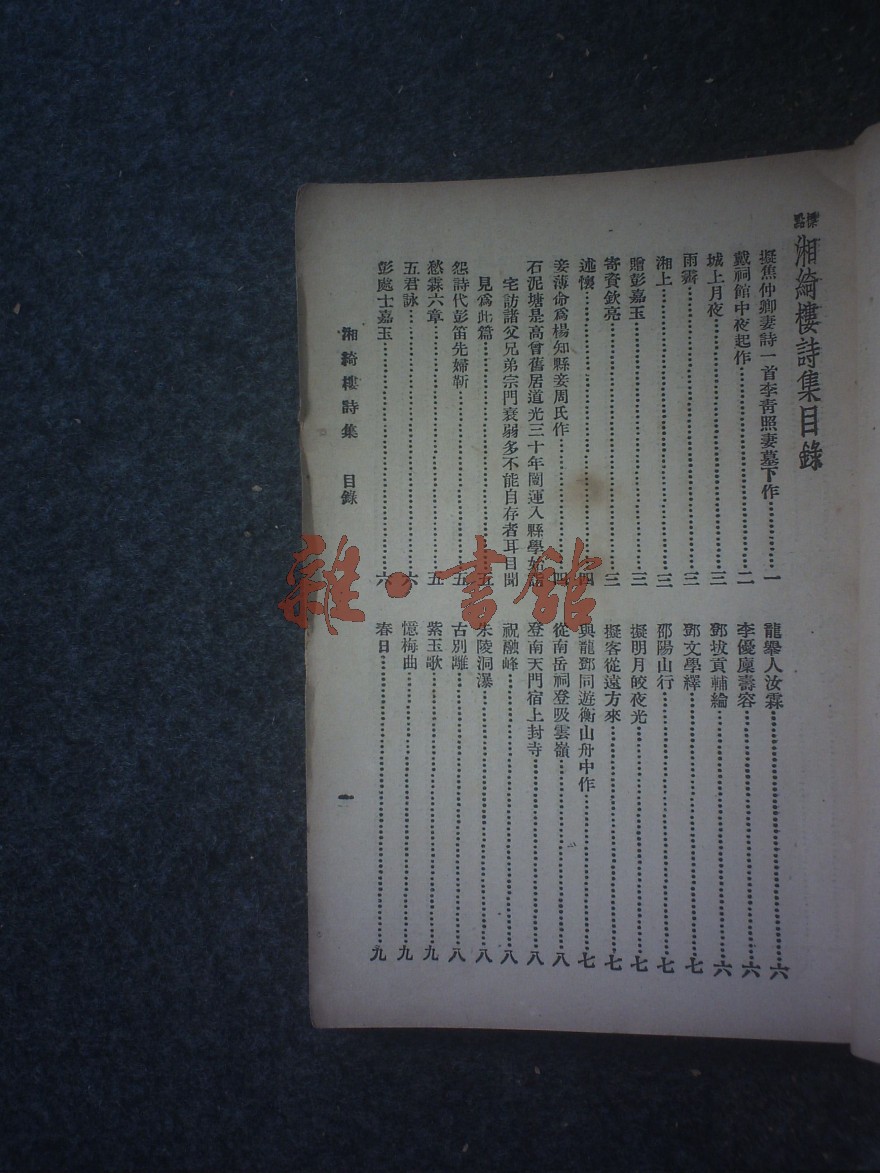 標點湘綺樓詩集目錄
擬焦仲卿妻詩一首李青照妻墓下作…………一
戴祠館中夜起作…………二
城上月夜…………三
雨霽…………三
湘上…………三
贈彭嘉玉…………三
寄資欽亮…………三
述懷…………四
妾薄命為楊知縣妾周氏作…………四
石泥塘是高曾舊居道光三十年闓運入縣學始詣
宅訪諸父兄弟宗門衰弱多不能自存者耳目聞
見爲此篇…………五
怨詩代彭笛先婦靳…………五
愁霖六章…………五
五君詠…………六
彭處士嘉玉…………六
龍舉人汝霖…………六
李優廩壽容…………六
鄧拔貢輔綸…………六
鄧文學繹…………七
邵陽山行…………七
擬明月皎夜光…………七
擬客從遠方來…………七
與龍鄧同遊衡山舟中作…………七
從南岳祠登吸雲嶺…………八
登南天門宿上封寺…………八
祝融峰…………八
朱陵洞瀑…………八
古別離…………八
紫玉歌…………九
憶梅曲…………九
春日…………九
湘綺樓詩集 目錄
一
雜·書館